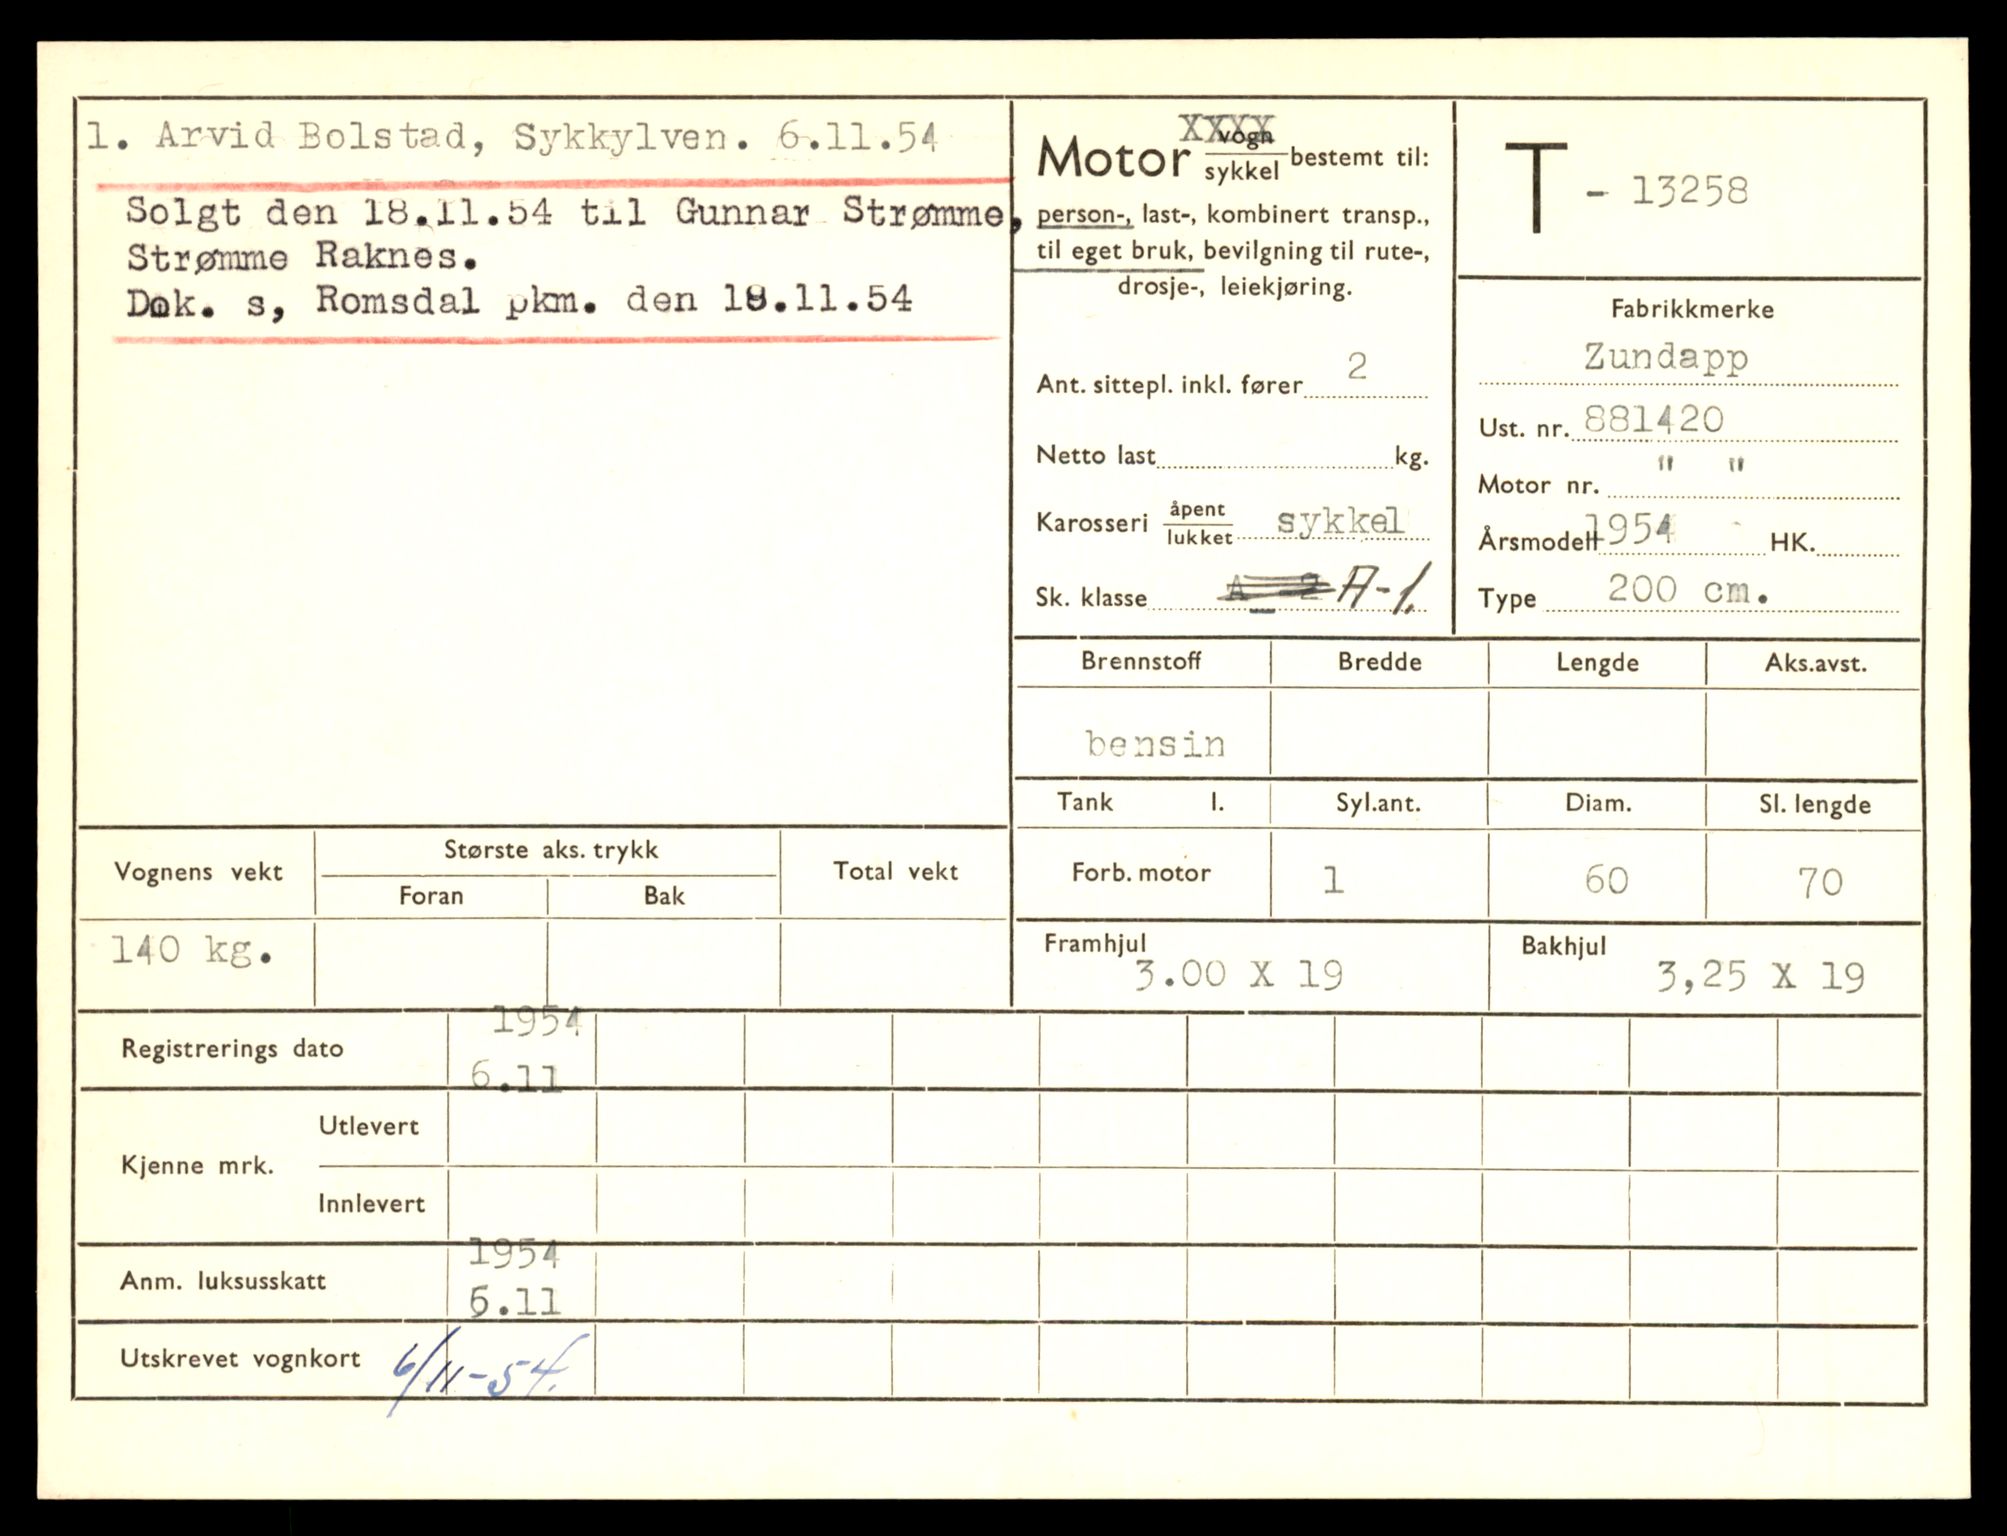 1. Arvid Bolstad, Sykkylven. 6.11.54
Solgt den 18.11.54 til Gunnar Strømme,
Strømme Raknes.
Dok. s, Romsdal pkm. den 18.11.54
Motor XXXX vogn / sykkel bestemt til:
person-, last-, kombinert transp.,
til eget bruk, bevilgning til rute-,
drosje-, leiekjøring.
Ant. sittepl. inkl. fører 2
Netto last kg.
Karosseri åpent / lukket sykkel
Sk. klasse A - 2 A-1.
T - 13258
Fabrikkmerke
Zundapp
Ust. nr. 881420
Motor nr. " "
Årsmodell 1954 HK.
Type 200 cm.
Brennstoff Bredde Lengde Aks.avst.
bensin
Tank l. Syl.ant. Diam. Sl. lengde
Forb. motor 1 60 70
Framhjul 3.00 X 19 Bakhjul 3,25 X 19
Vognens vekt Største aks. trykk Total vekt
Foran Bak
140 kg.
Registrerings dato 1954
6.11
Kjenne mrk. Utlevert
Innlevert
Anm. luksusskatt 1954
6.11
Utskrevet vognkort 6/11-54.